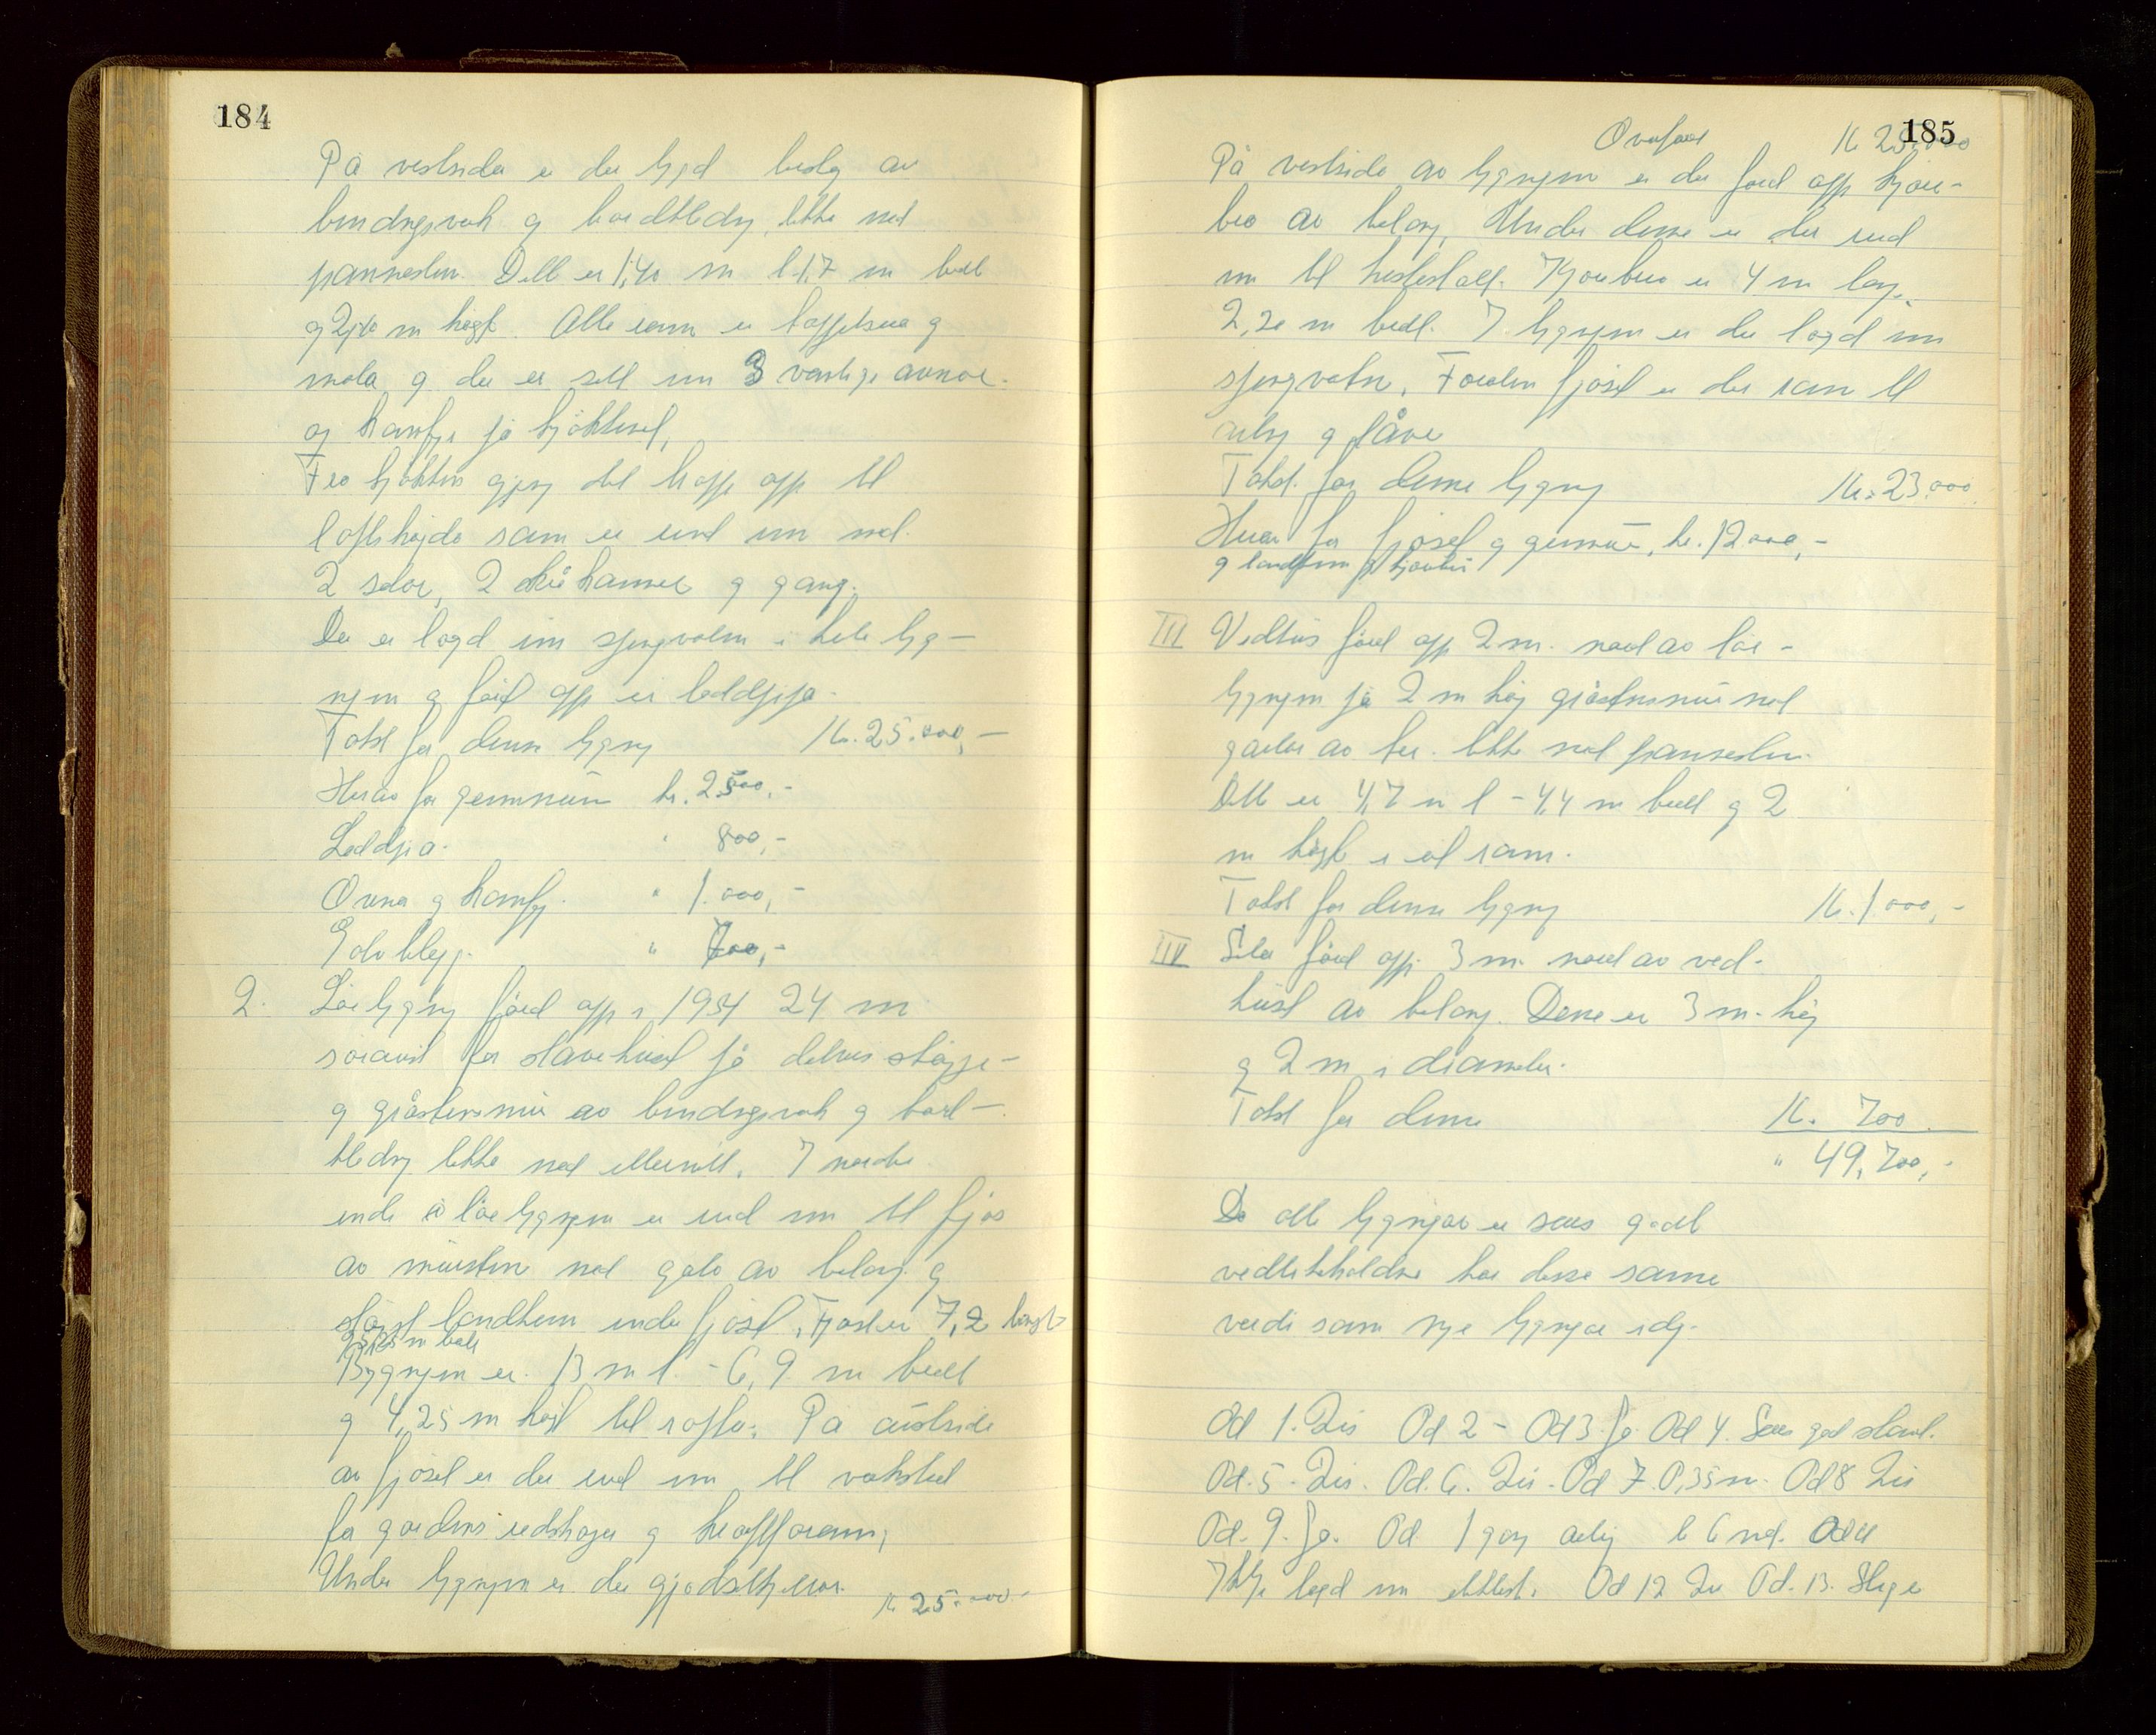 184
På vestsida er der bygd beslag av
bindingsverk og bordkledning, tekka med
pannestein. Dette er 1,40 m l. 1,7 m bredt
og 2,10 m høgt. Alle romm er tappetsera og
mala og der er sett inn 3 vanlige omnar
og komfyr på kjøkkenet,
Fra kjøkken gjeng det trapp opp til
loftshøgda som er innred inn med
2 stover, 2 små kammer og gang.
Der er lagd inn springvatn i hele byg-
ningen og ført opp ei loddpipa.
Takst for denne bygning Kr. 25.000,-
Herav for grunnmur kr. 2.500,-
Loddpipa " 800,-
Omnar og komfyr " 1.000,-
" 700,-
2. Løebygning förd opp i 1934 24 m
søraust for stovehuset på delvis støype-
og gråsteinsmur av bindingsverk og bord-
kledning tekka med eternitt. I nordre
ende i löebygningen er inred inn til fjös
av murstein med golv av betong og
støypt landkum under fjöset, Fjöset er 7,2 langt
m bredt
Bygningen er 13 m l. - 6,9 m bredt
og 4,25 m högt til raftet. På austside
av fjöset er der inred inn til verksted
for gardens redskaper og kraftforrom,
Under bygningen er der gjødselkjellar.
Kr 25.000.-
185
Overført Kr 25.000
På vestside av bygningen er der förd opp kjøre-
bro av betong, Under denne er der inred
inn til hestestall. Kjørebroa er 4 m lang,
2,20 m bredt. I bygningen er der lagd inn
springvatn. Foruten fjöset er der rom til
og låve
Takst for denne bygning Kr. 23.000
Herav for fjöset og grunnmur, kr. 12000,-
og landkum og kjørebru
III Vedhus förd opp 2 m. nord av löe-
bygningen på 2 m høg gråsteinsmur med
golv av tre. tekka med pannestein.
Dette er 4,7 m l - 4,4 m bredt og 2
m høgt i eit rom.
Takst for denne bygning Kr. 1.000,-
IIV Silo förd opp 3 m. nord av ved-
huset av betong. Denne er 3 m. høg
og 2 m i diameter.
Takst for denne Kr. 700
" 49.700,-
Da alle bygningar er sers godt
vedlikeholdne har desse samme
verdi som nye bygningar idag.
Od 1. Zis Od 2 - Od 3. Ja. Od 4. Sers god stand.
Od. 5. Zis. Od. 6. Zis. Od 7. 0,35 m. Od 8 Zis
Od. 9. Ja. Od 1 gang årlig
Ikkje lagd inn elektrisk. Od 12 Od. 13.